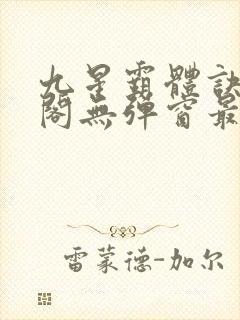 九星霸體訣
閣無彈窗最
雷蒙德-加尔